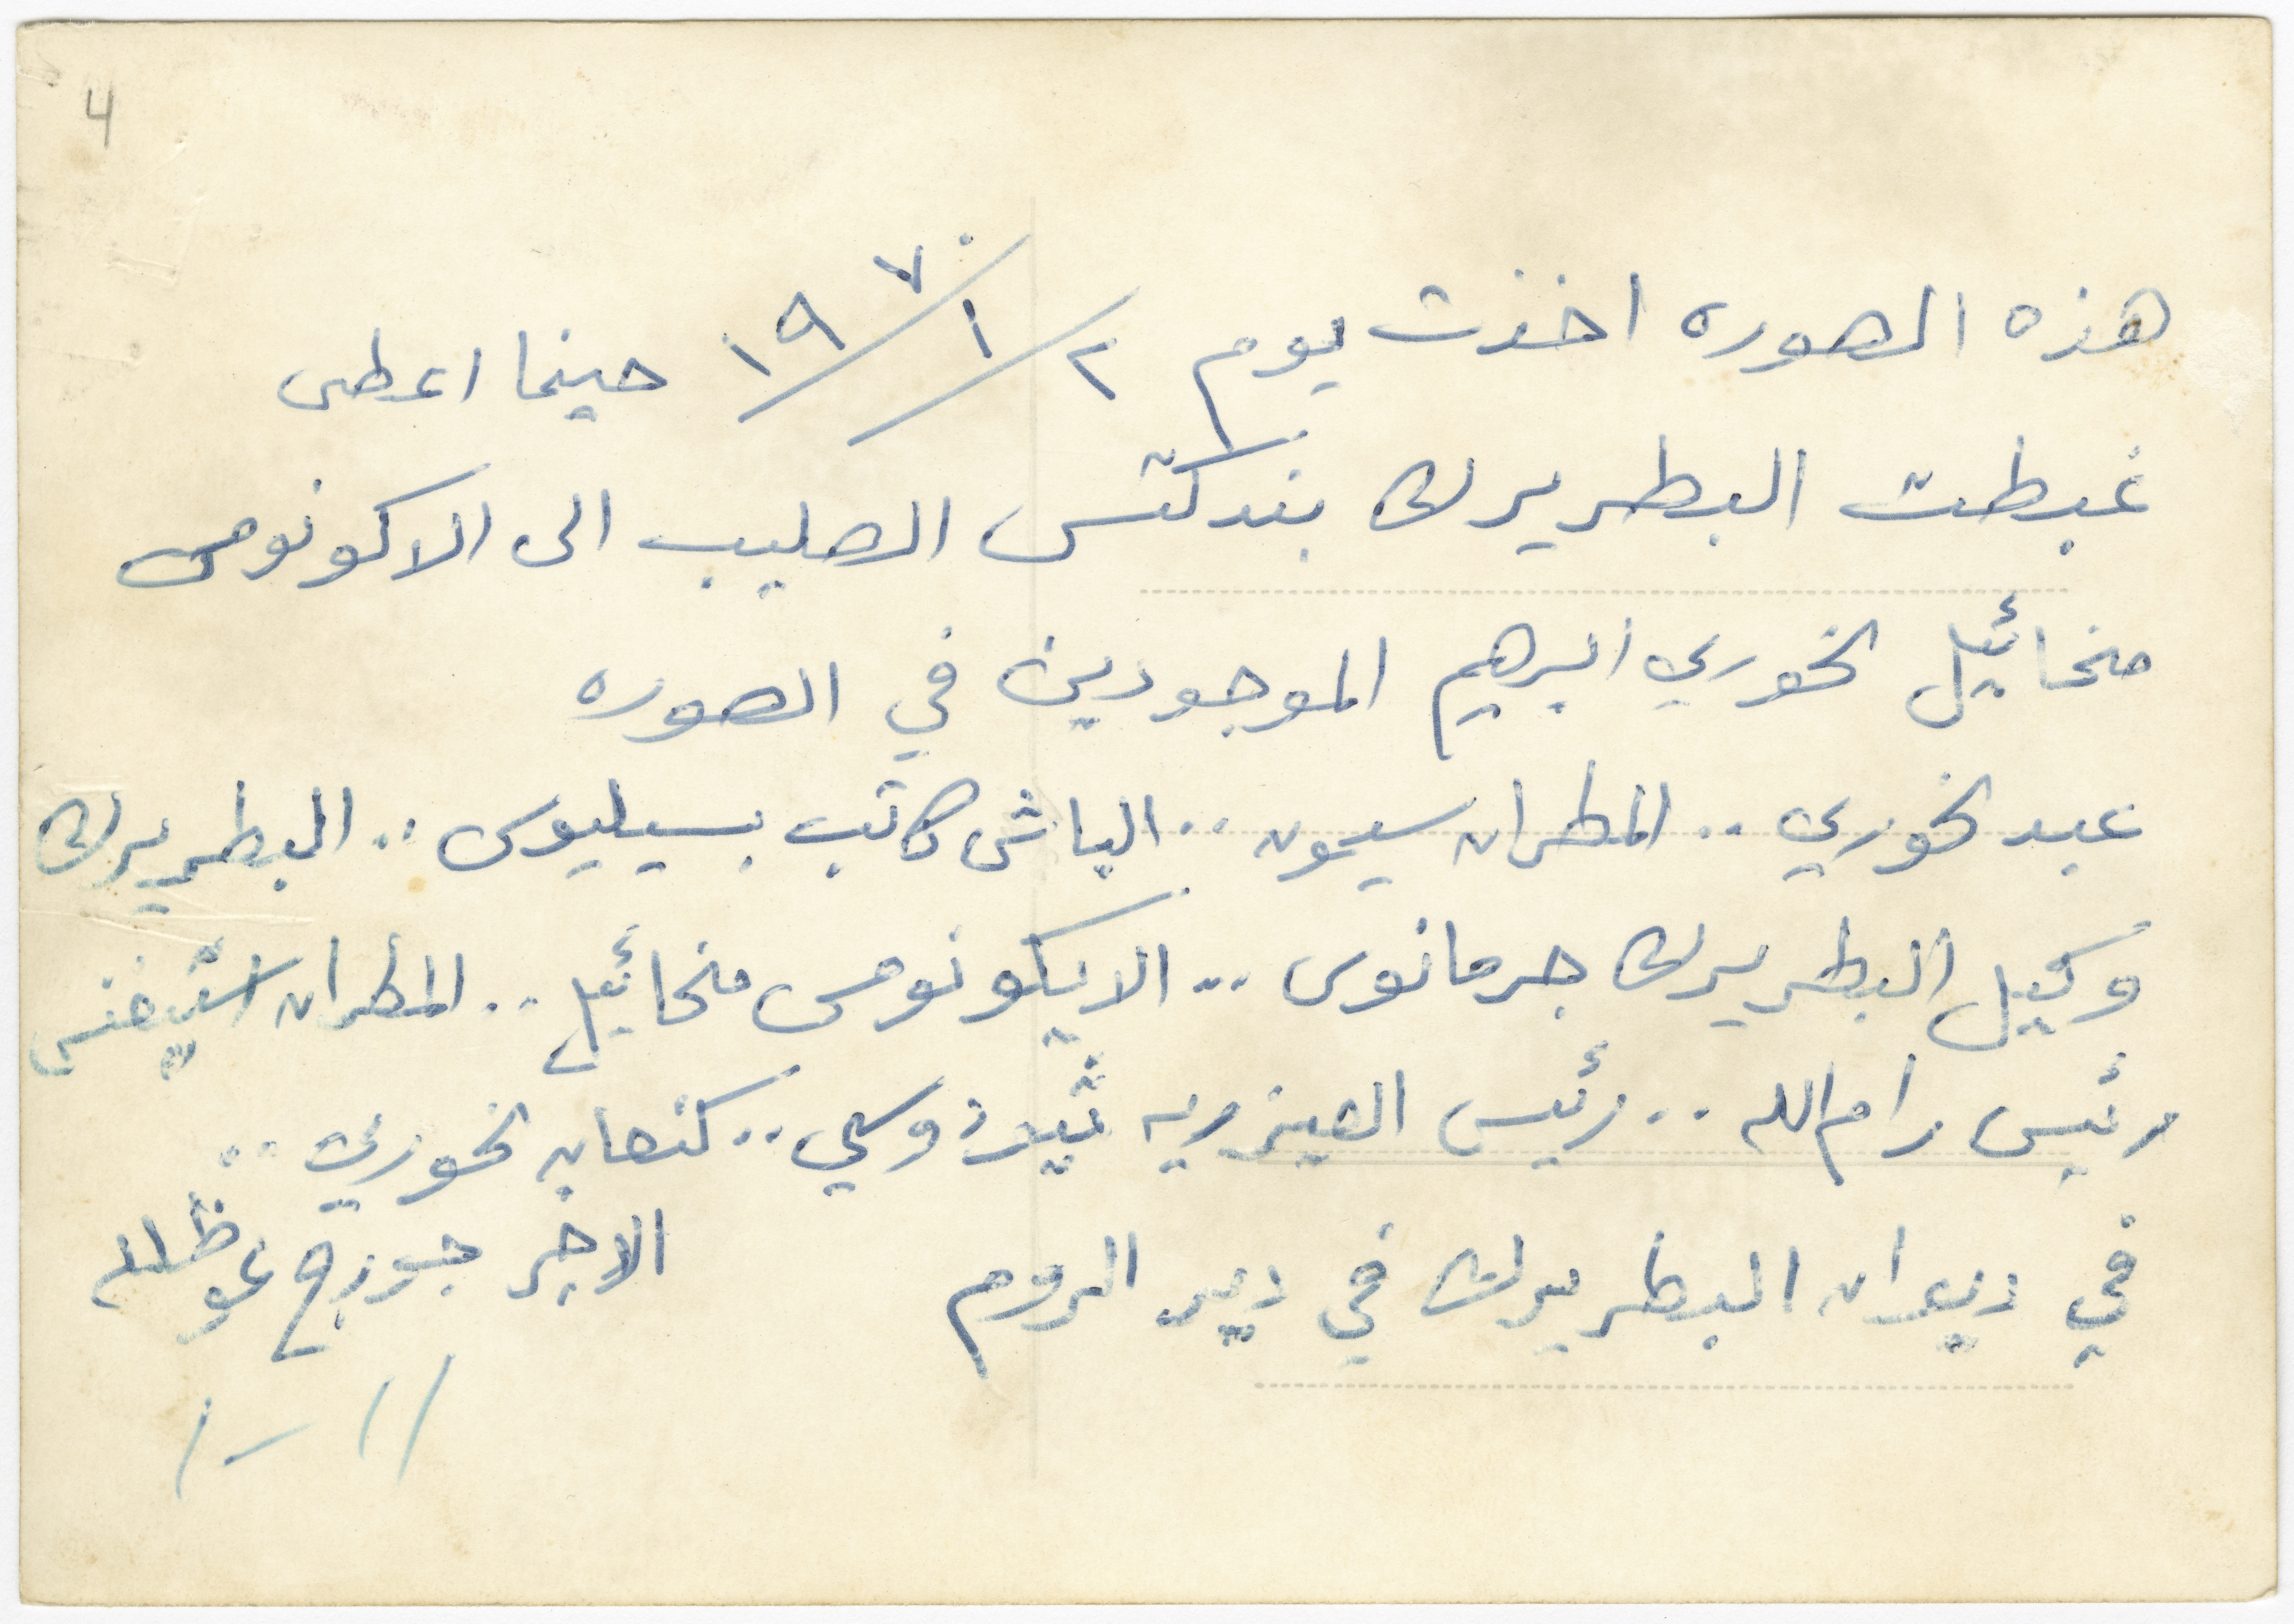 4
هذه الصوره اخذت يوم ٢/١/١٩٧٠ حينما اعطى
غبطت البطريرك بندكتس الصليب الى الاكونومس
مخائيل الخوري ابرهيم الموجودين في الصوره
عبد الخوري .. المطران سيمون .. الباش كاتب بسيليوس .. البطريرك
وكيل البطريرك جرمانوس .. الايكونومس مخائيل .. المطران استيفنس
رئيس رام الله .. رئيس العيزريه ثيودوسي .. كنعان الخوري ..
في ديوان البطريرك في دير الروم
الاخير جورج عوظ الله